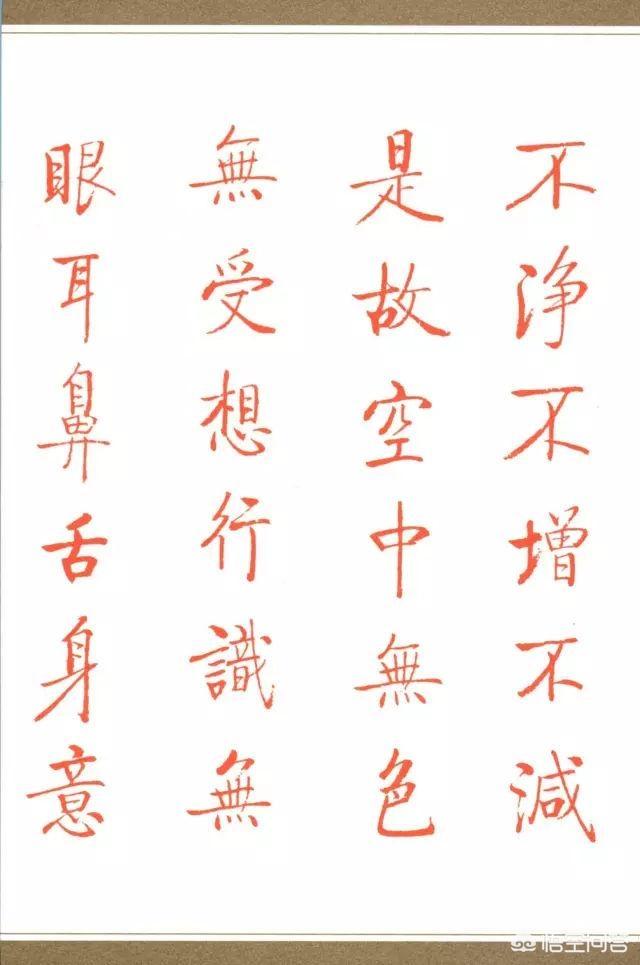 不淨不增不減
是故空中無色
無受想行識無
眼耳鼻舌身意
悟空问答